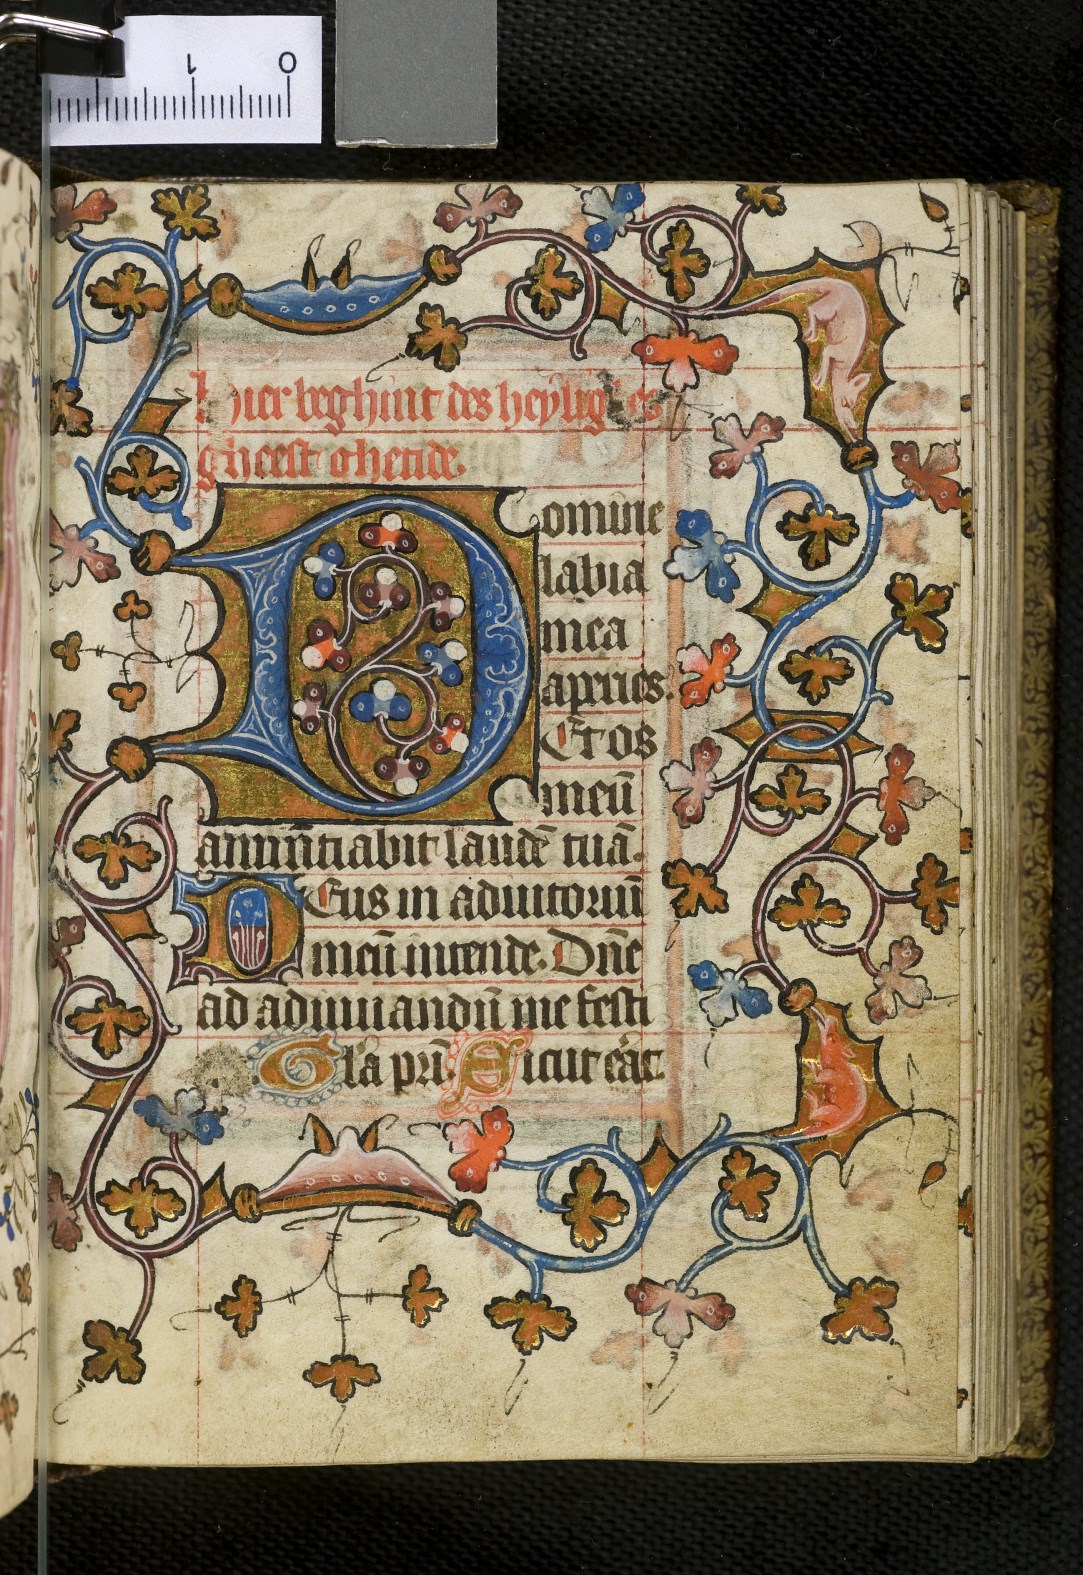 1 0
hier beghint des heylighes
gheest ghetide.
Domine
labia
mea
apries.
Et os
meū
annūtiabit laudē tuā.
DEus in adiutoriū
meū intende. Dn̄e
ad adiuuandū me festi
Gl'a pr̄i. Sicut erat.